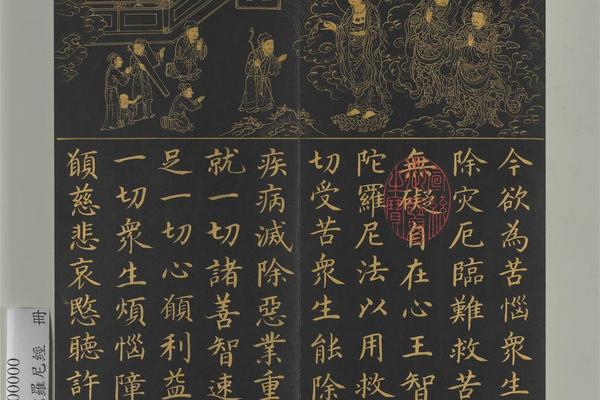 今欲為苦惱衆生
除灾厄臨難救苦
無礙自在心王智
陀羅尼法以用救
切受苦衆生能除
疾病滅除惡業重
就一切諸善智速
足一切心願利益
一切衆生煩惱障
願慈悲哀愍聽許
羅尼經 冊
00000